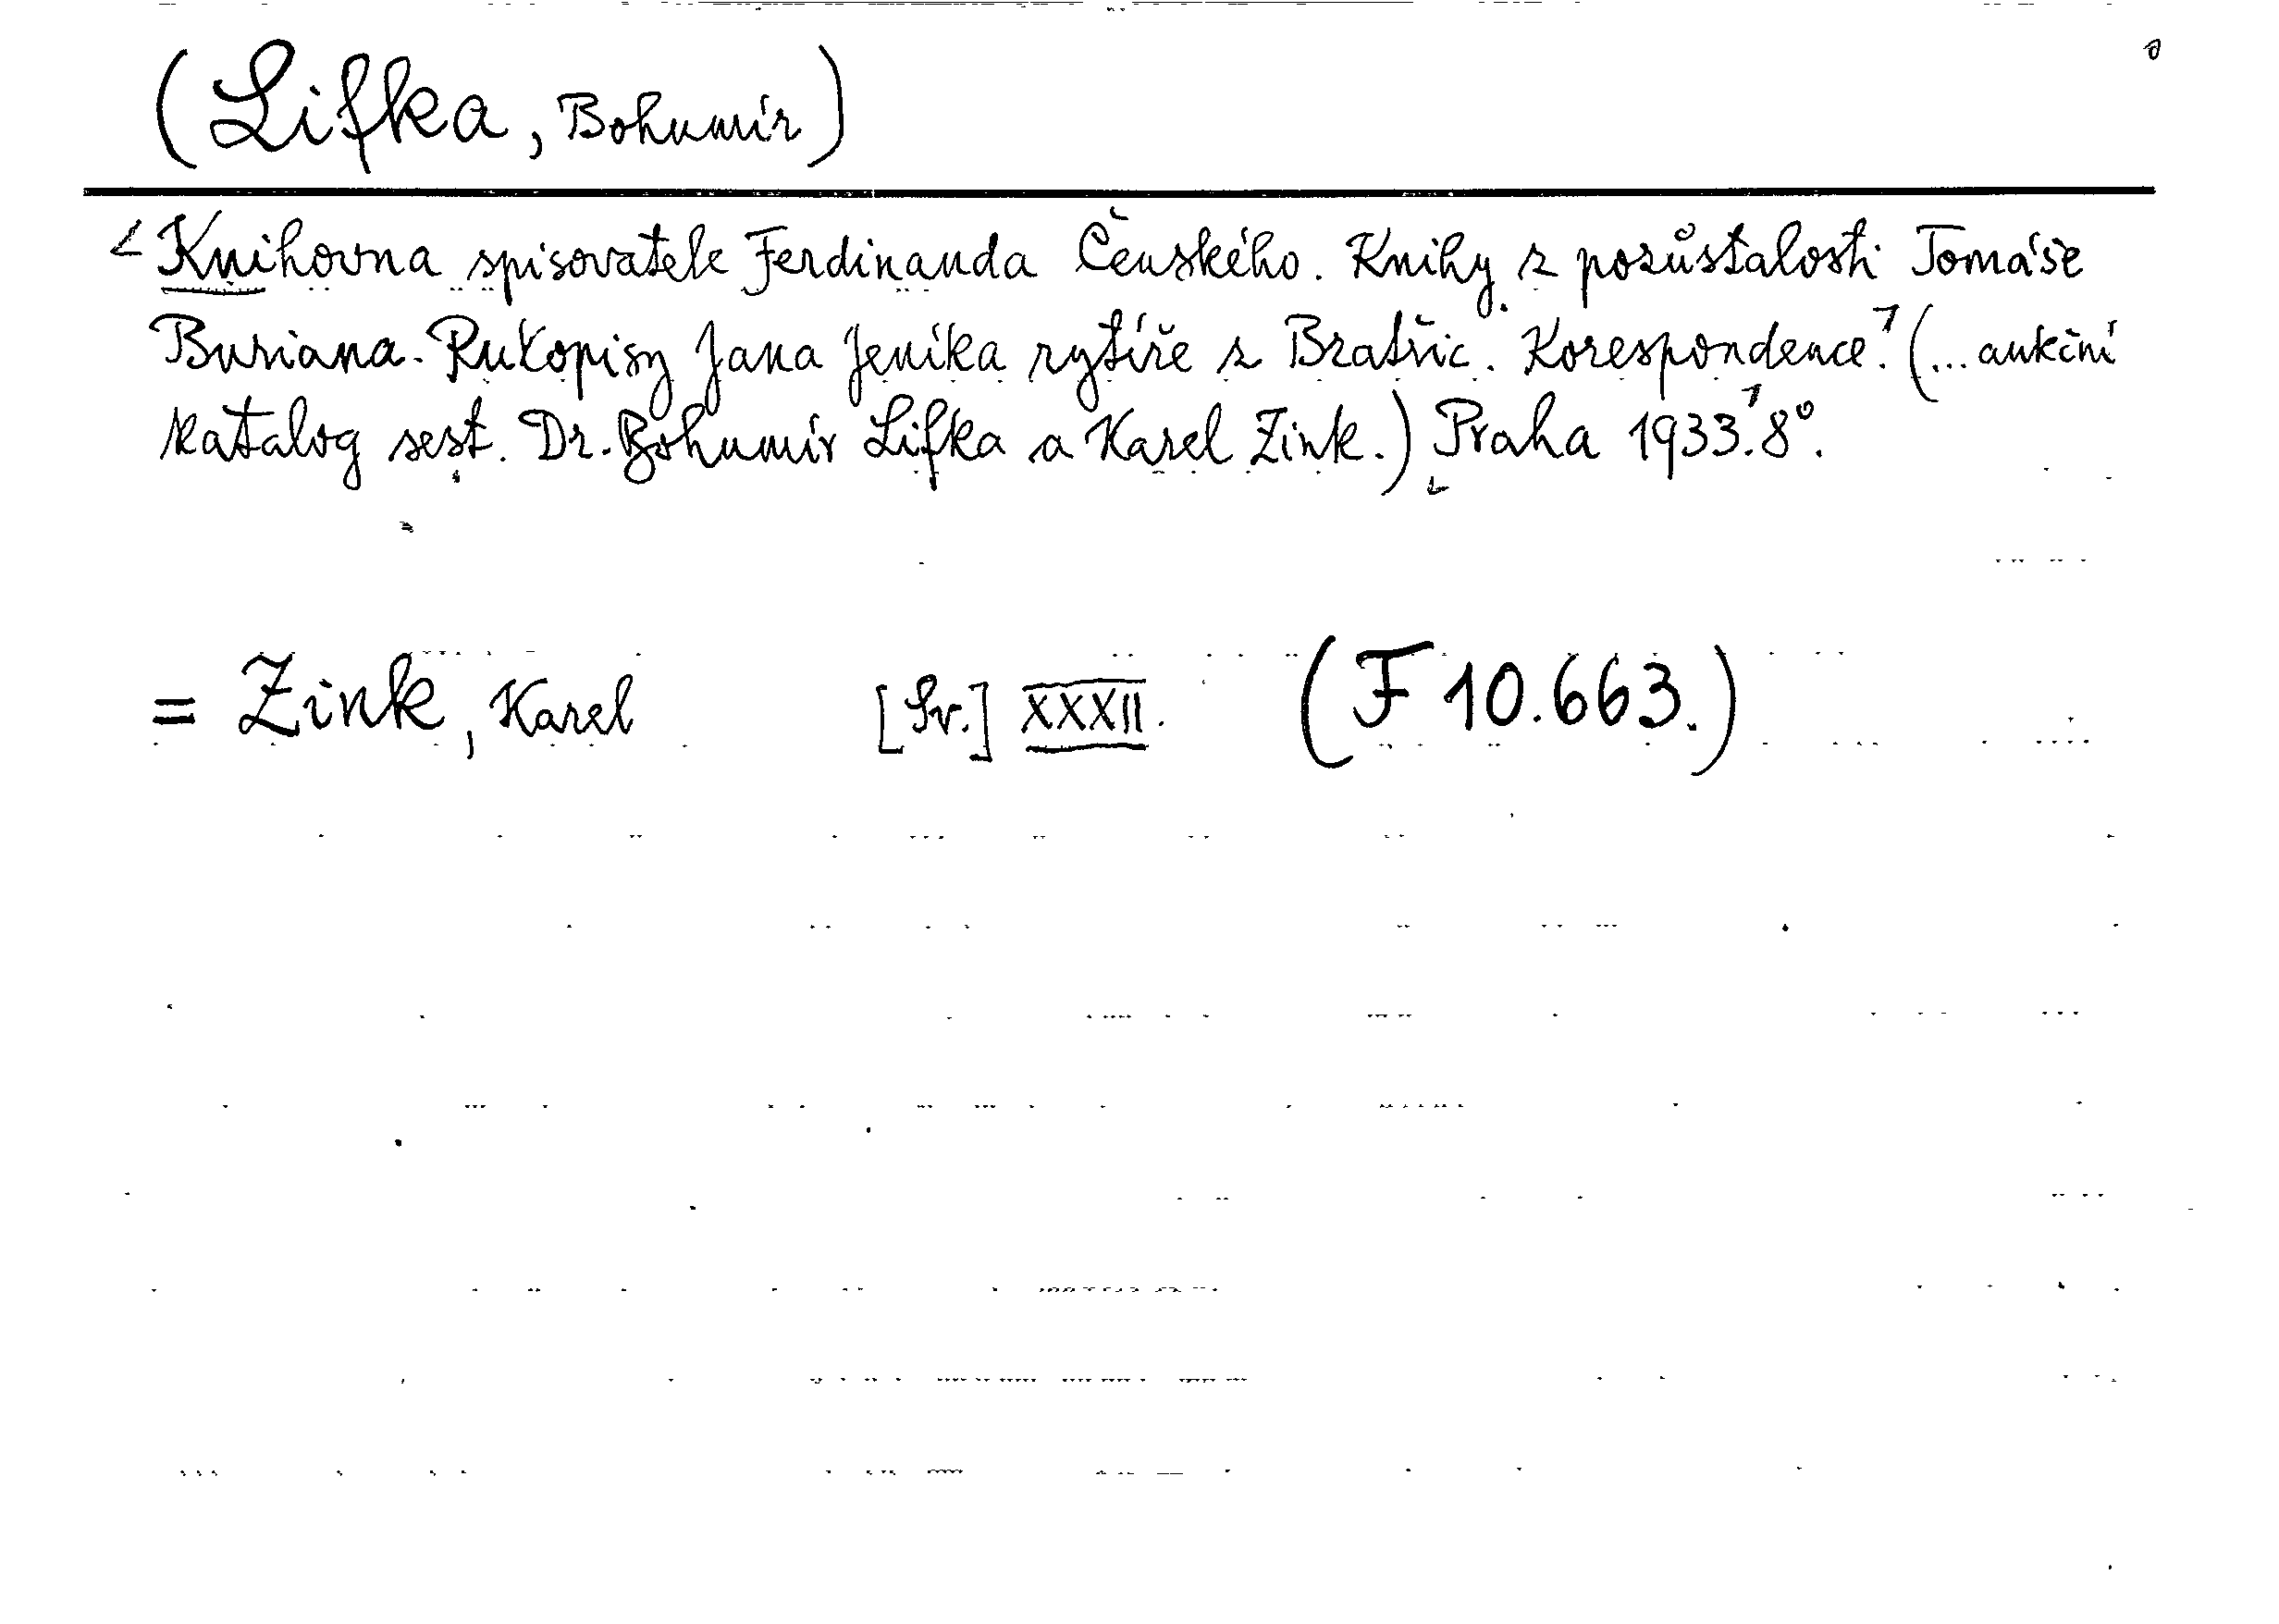 (Lifka, Bohumír)
Knihovna spisovatele Ferdinanda Čenského. Knihy z pozůstalosti Tomáše
Buriana. Rukopisy Jana Jeníka rytíře z Bratřic. Korespondence. (... aukční
katalog sest. Dr. Bohumír Lifka a Karel Zink.) Praha 1933. 8°.
= Zink, Karel [Sv.] XXXII. (F 10.663.)